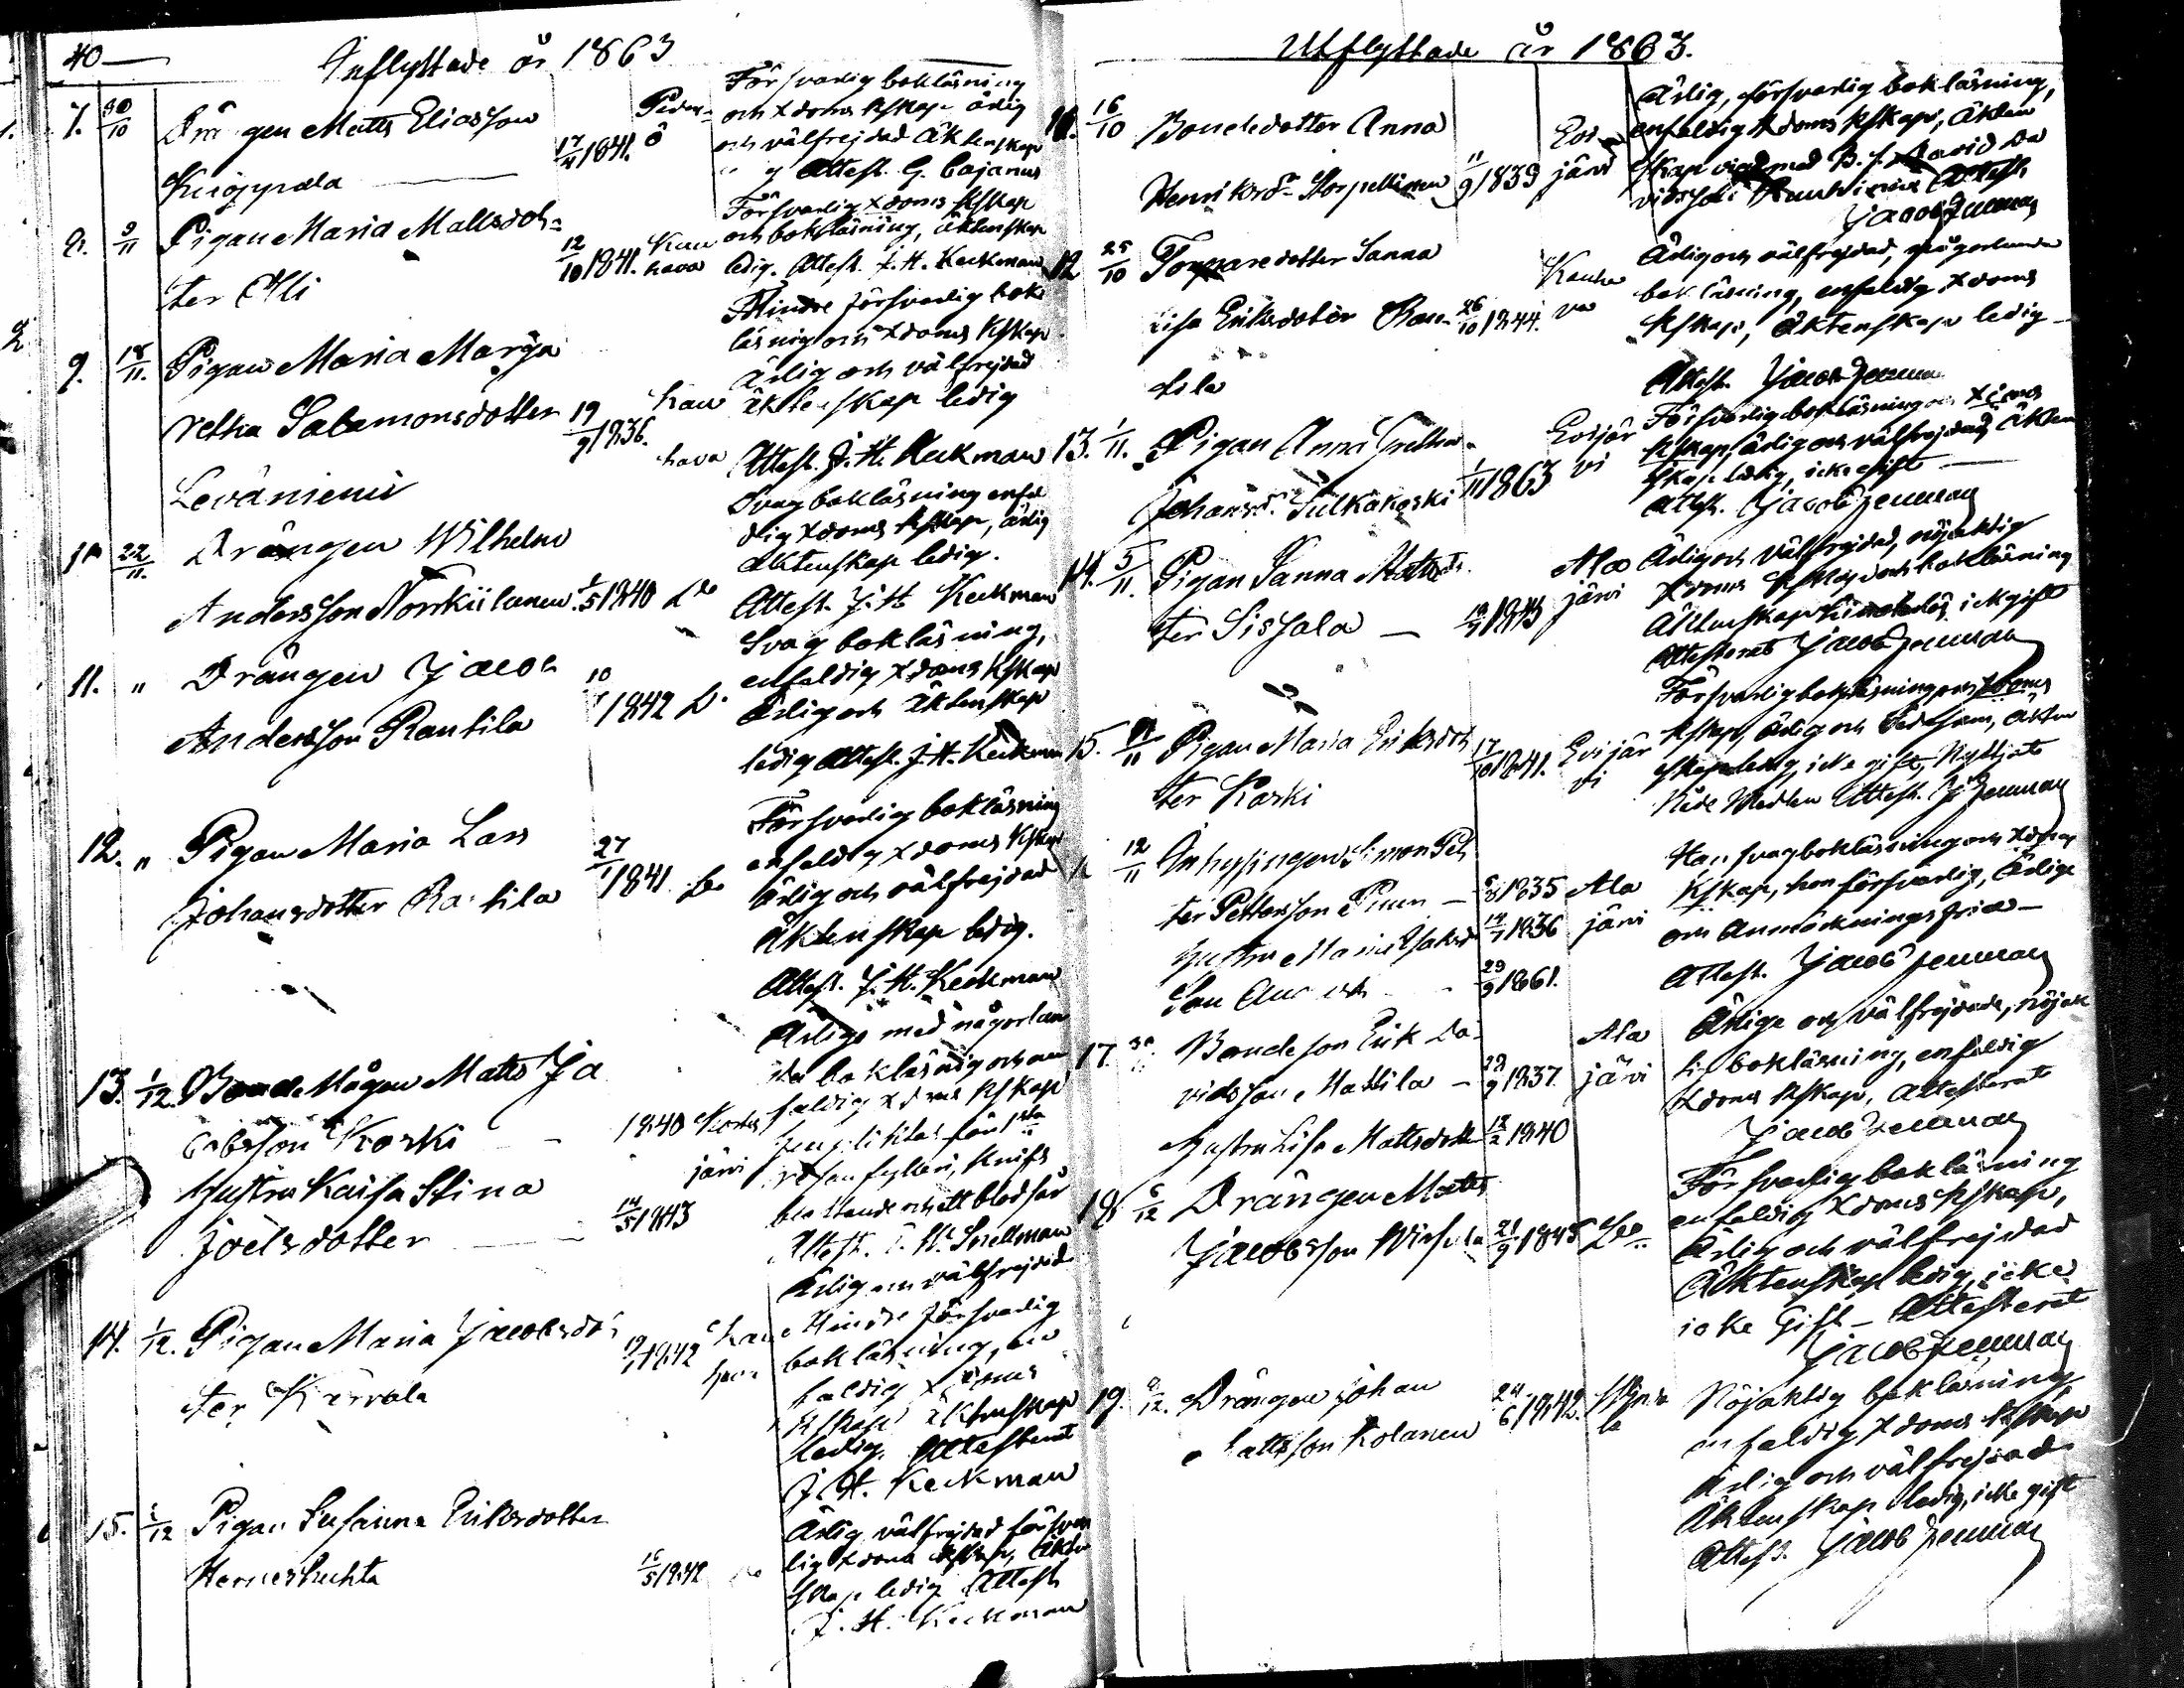 40
Inflyttade år 1863
7. 30/10 Drängen Matts Eliasson
Knuppala 17/4 1841. Peders-
ö
Försvarlig bokläsning
och Xdoms kskap ärlig
och välfrejdad Äktenskap
Attest. G. Cajanus
8. 9/11 Pigan Maria Mattsdot-
ter Alli 12/10 1841. Kau
hava
Försvarlig Xdoms kskap
och bokläsning, Äktenskap
ledig. Attest. J. H. Keckman
9. 18/11. Pigan Maria Marga
retha Salamonsdotter 19/9 1836. Kau
hava
Leväniemi
Mindre försvarlig bok
läsning och Xdoms kskap
ärlig och välfrejdad
äktenskap ledig
Attest. J. H. Keckman
10 22/11. Drängen Wilhelm
Andersson Norrkiilanen 1/5 1840 Do
Svag bokläsning enfal
dig Xdoms kskap, ärlig
äktenskap ledig.
Attest. J. H. Keckman
11. " Drängen Jacob
Andersson Rantila 1842 Do
Svag bokläsning,
enfaldig Xdoms kskap
Ärlig och Äktenskap
ledig Attest. J. H. Keckman
12. " Pigan Maria Lars
Johansdotter Rantila 27/1 1841 Do
Försvarlig bokläsning
enfaldig Xdoms kskap
ärlig och välfrejdad
Äktenskap ledig.
Attest. J. H. Keckman
13. 1/12. Bonde Mågen Matts Ja
cobsson Koski 1840 Kortes
järvi
Hustru Kaisa Stina
Joelsdotter 14/5 1843
Ärlige med någorlun
da bokläsnig och en
faldig Xdoms kskap
för 1sta
resan fylleri, knifs
och ett blodsår
Attest. Snellman
14. 1/12. Pigan Maria Jacobsdot
ter Kärvala 1842 Kau
hava
Ärlig och välfrejdad
Mindre försvarlig
bokläsning, en
faldig Xdoms
kskap äktenskap
ledig. Attesterat
J. H. Keckman
15. 1/12 Pigan Susanna Eriksdotter
Herneshuhta 16/5 1842 Do
Ärlig välfrejdad försvar
lig Xdoms kskap, äkten
skap ledig Attest
J. H. Keckman
Utflyttade år 1863.
11. 16/10 Bondedotter Anna
Henriksdr Storpellinen 11/9 1839 Evi
järvi
Ärlig, försvarlig bokläsning,
enfaldig Xdoms kskap, Äkten
skap vigd med B. S. David Da
vidsson Attest
Jacob Jenman
12 25/10 Torparedotter Sanna
Lisa Eriksdotter Ran- 26/10 1844. Kauha
va
tila
Ärlig och välfrejdad, någorlunda
bokläsning, enfaldig Xdoms
kskap, Äktenskap ledig
Attest. Jacob Jenman
13. 1/11. Pigan Anna Greta
Johansdr. Sulkakoski 1/11 1863 Evijär
vi
Försvarlig bokläsning och Xdoms
kskap, ärlig och välfrejdad, Äkten
skap ledig, icke gift
Attest. Jacob Jenman
14. 5/11. Pigan Sanna Mattsdot
ter Sissala 1843 Ala
järvi
Ärlig och Välfrejdad, nöjaktig
Xdoms kskap och bokläsning
Äktenskap ick gift
Attesterat Jacob Jenman
15. 11/11 Pigan Maria Eriksdot
ter Koski 17/10 1841. Evijär
vi
Försvarlig bokläsning och Xdoms
kskap, Ärlig och Sedesam, äkten
skap ledig, icke gift, Nyttjat
Nåde Medlen Attest. J. Jenman
16 12/11 Inhysingen Simon Pet
ter Pettersson Pinen 1835 Ala
järvi
Hustru Maria 14/7 1836
Son 29/9 1861.
Han svag bokläsning och Xdoms
kskap, hon försvarlig, Ärlige
och Anmärkningsfria
Attest. Jacob Jenman
17. 30/11 Bondeson Erik Da
vidsson Mattila 29/9 1837. Ala
järvi
Hustru Lisa Mattsdotter 18/2 1840
Ärlige och välfrejdade, nöjak
lig bokläsning, enfaldig
Xdoms kskap, Attesterat
Jacob Jenman
18 5/12 Drängen Matts
Jacobsson Wirsula 21/9 1845 Do
Försvarlig bokläsning
enfaldig Xdoms kskap,
Ärlig och välfrejdad
Äktenskap ledig, icke
icke Gift Attesterat
Jacob Jenman
19. 9/12. Drängen Johan
Mattsson Kolanen 24/6 1842.
Nöjaktig bokläsning
enfaldig Xdoms kskap
ärlig och välfrejdad
Äktenskap ledig, icke gift
Attest. Jacob Jenman